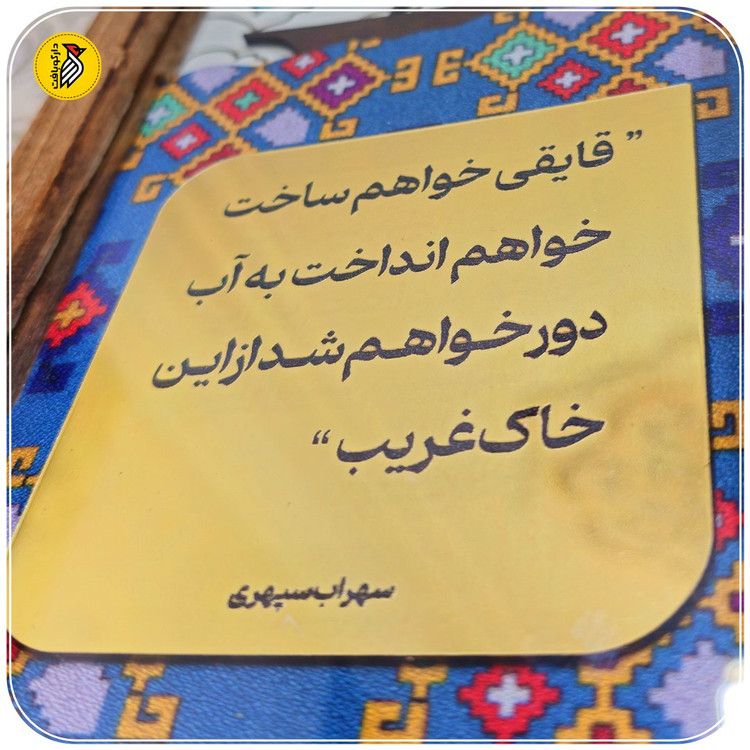 دارکوبافت
” قایقی خواهم ساخت
خواهم انداخت به آب
دور خواهم شد از این
خاک غریب “
سهراب سپهری